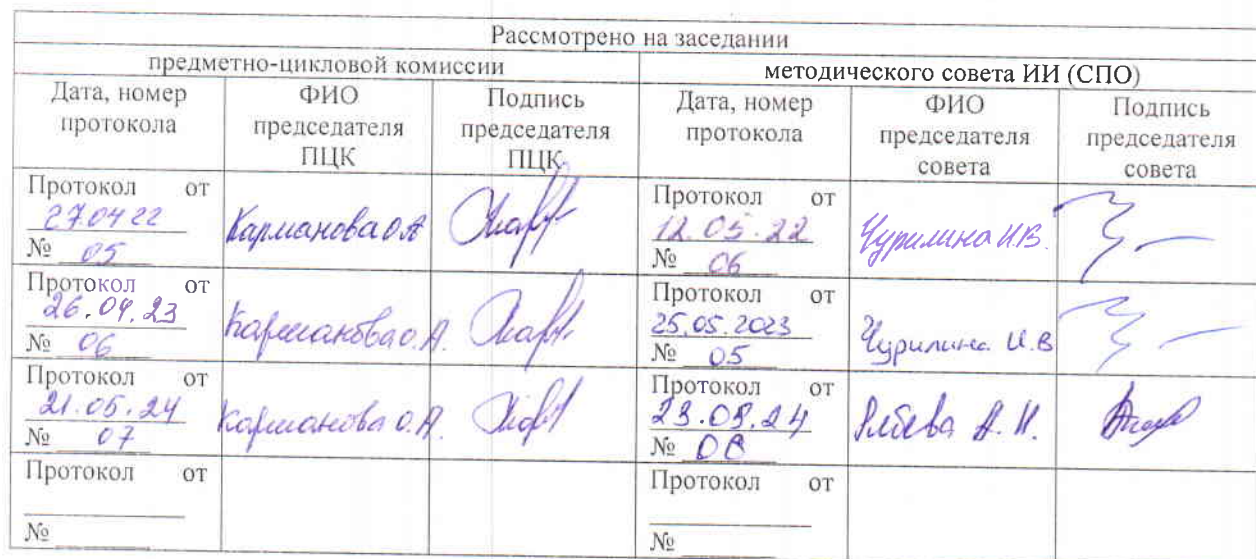 Рассмотрено на заседании
предметно-цикловой комиссии
методического совета ИИ (СПО)
Дата, номер протокола
ФИО председателя ПЦК
Подпись председателя ПЦК
Дата, номер протокола
ФИО председателя совета
Подпись председателя совета
Протокол от
27.04 22
№ 05
Карманова О.А
Протокол от
12.05.22
№ 06
Чурилина И.В.
Протокол от
26.04.23
№ 06
Карманова О.А.
Протокол от
25.05.2023
№ 05
Чурилина И.В
Протокол от
21.05.24
№ 07
Карманова О.А.
Протокол от
23.05.24
№
А. Н.
Протокол от
№
Протокол от
№